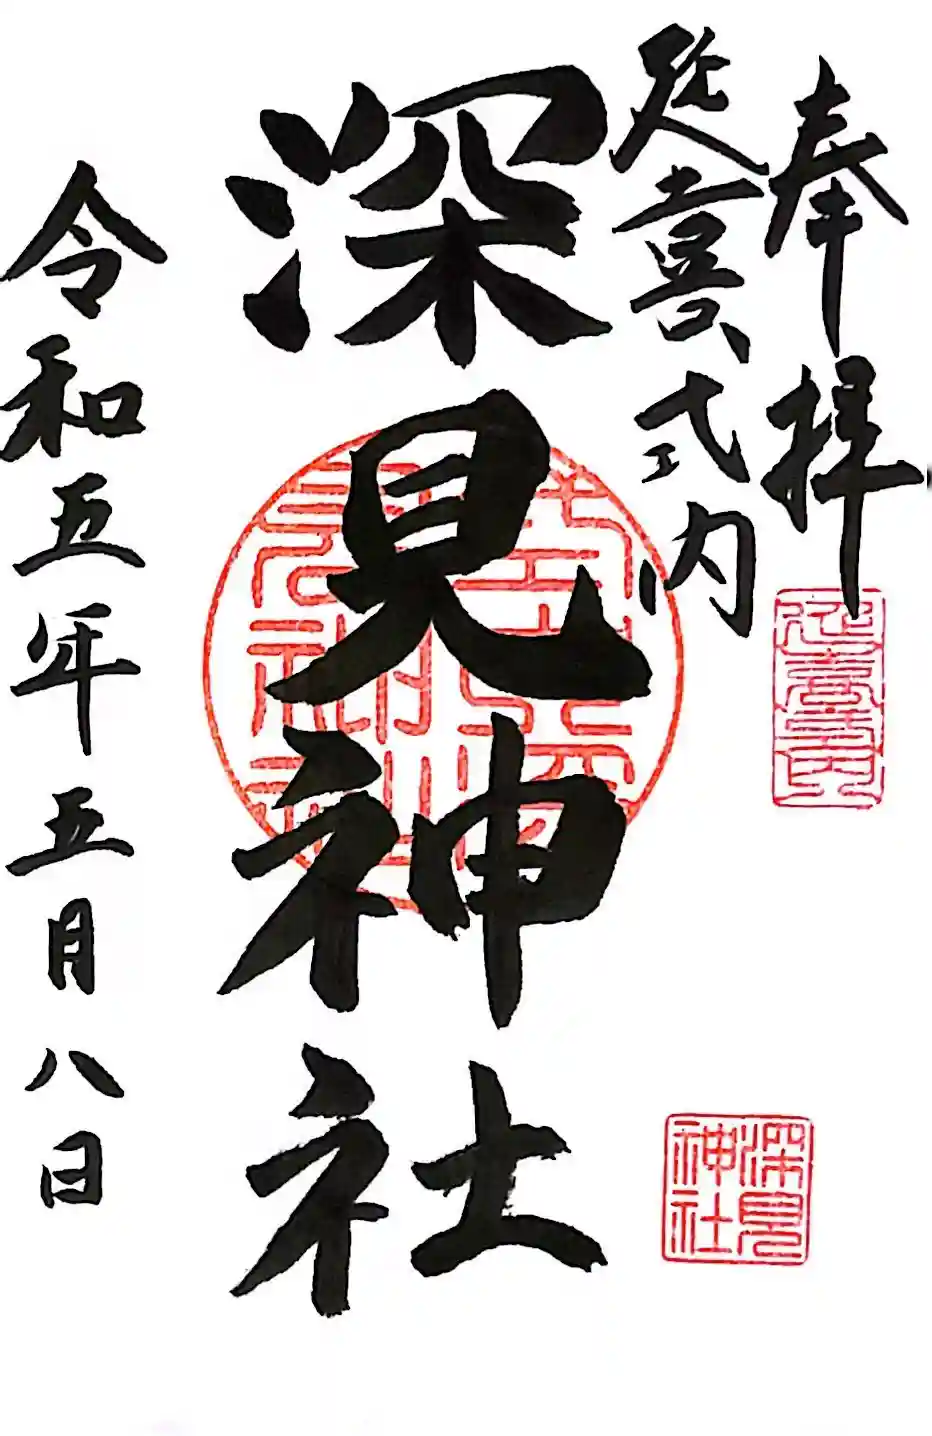 奉拝
延喜式内
延喜式内
深見神社
深見神社
令和五年五月八日